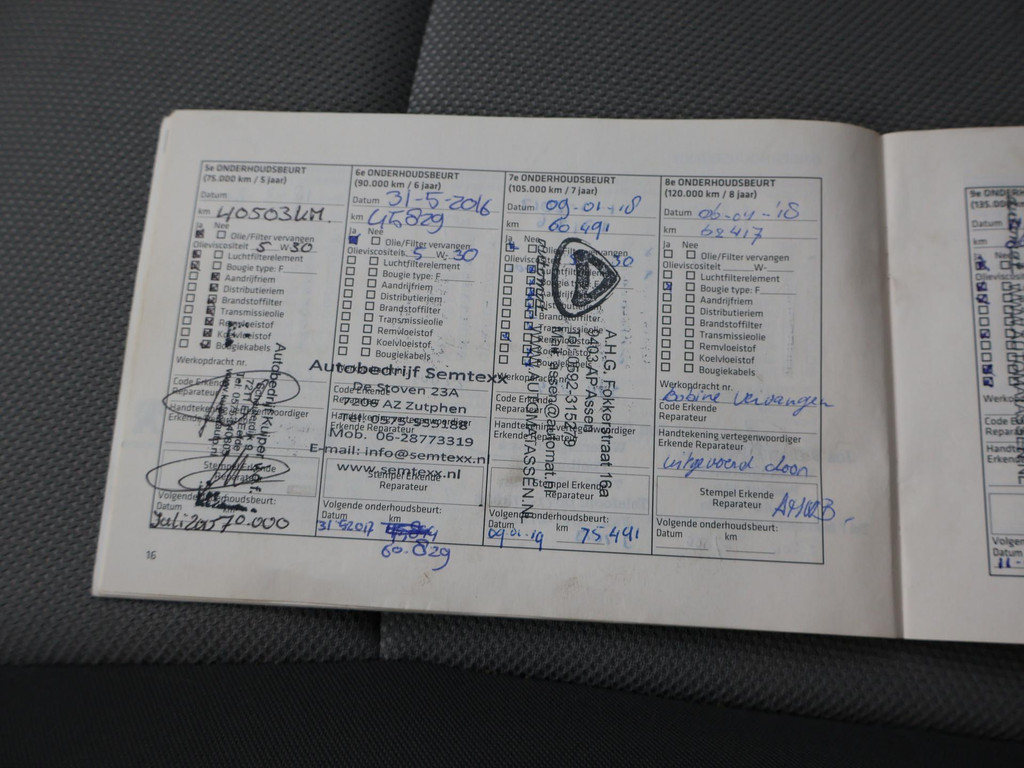 5e ONDERHOUDSBEURT
(75.000 km / 5 jaar)
Datum
km 40503 KM.
Ja Nee
Olie/Filter vervangen
Olieviscositeit 5 W- 30
Luchtfilterelement
Bougie type: F
Aandrijfriem
Distributieriem
Brandstoffilter
Transmissieolie
Remvloeistof
Koelvloeistof
Bougiekabels
Werkopdracht nr.
Code Erkende
Reparateur
Handtekening vertegenwoordiger
Erkende
Autobedrijf
Stempel Erkende
Reparateur
Volgende onderhoudsbeurt:
Datum
Juli 70.000
16
6e ONDERHOUDSBEURT
(90.000 km / 6 jaar)
Datum 31-5-2016
km 45829
Ja Nee
Olie/Filter vervangen
Olieviscositeit 5 W- 30
Luchtfilterelement
Bougie type: F
Aandrijfriem
Distributieriem
Brandstoffilter
Transmissieolie
Remvloeistof
Koelvloeistof
Bougiekabels
Autobedrijf Semtexx
De Stoven 23A
7206 AZ Zutphen
Tel. 0575-555188
Mob. 06-28773319
E-mail: info@semtexx.nl
www.semtexx.nl
Code Erkende
Reparateur
Stempel Erkende
Reparateur
Volgende onderhoudsbeurt:
Datum km
31 5 2017
60.829
7e ONDERHOUDSBEURT
(105.000 km / 7 jaar)
Datum 09-01-18
km 60.491
Ja Nee
30
Brandstoffilter
Transmissieolie
Remvloeistof
A.H.G. Fokkerstraat 16a
9403 AP Assen
Code Erkende
Reparateur
Handtekening vertegenwoordiger
Erkende Reparateur
Stempel Erkende
Reparateur
Volgende onderhoudsbeurt:
Datum km
09-01-19 75.491
8e ONDERHOUDSBEURT
(120.000 km / 8 jaar)
Datum 06-04-'18
km 62417
Ja Nee
Olie/Filter vervangen
Olieviscositeit W-
Luchtfilterelement
Bougie type: F
Aandrijfriem
Distributieriem
Brandstoffilter
Transmissieolie
Remvloeistof
Koelvloeistof
Bougiekabels
Werkopdracht nr.
Bobine vervangen
Code Erkende
Reparateur
Handtekening vertegenwoordiger
Erkende Reparateur
uitgevoerd door
Stempel Erkende
Reparateur
Volgende onderhoudsbeurt:
Datum km
9e
(135.0
Datum
km
Ja
Code
Repara
Handte
Erkend
Volgen
Datum
11-